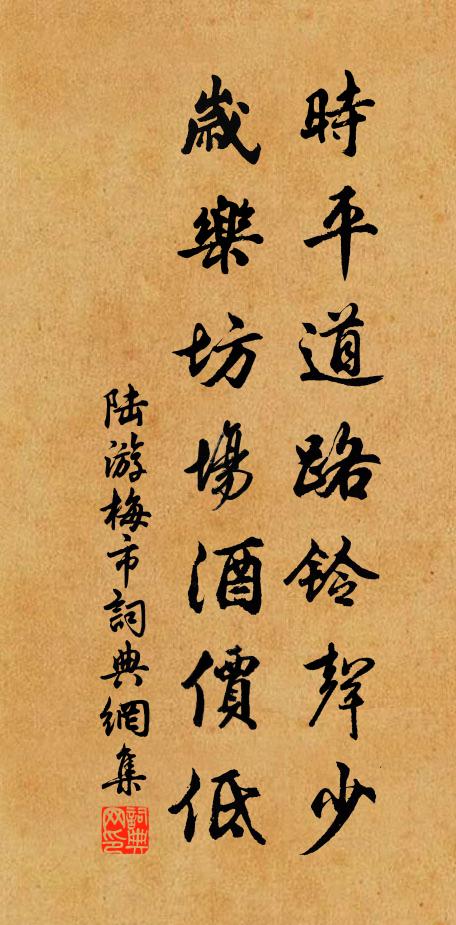 時平道路鈴聲少
歲樂坊場酒價低
陆游梅市詞典網集
詞典网印